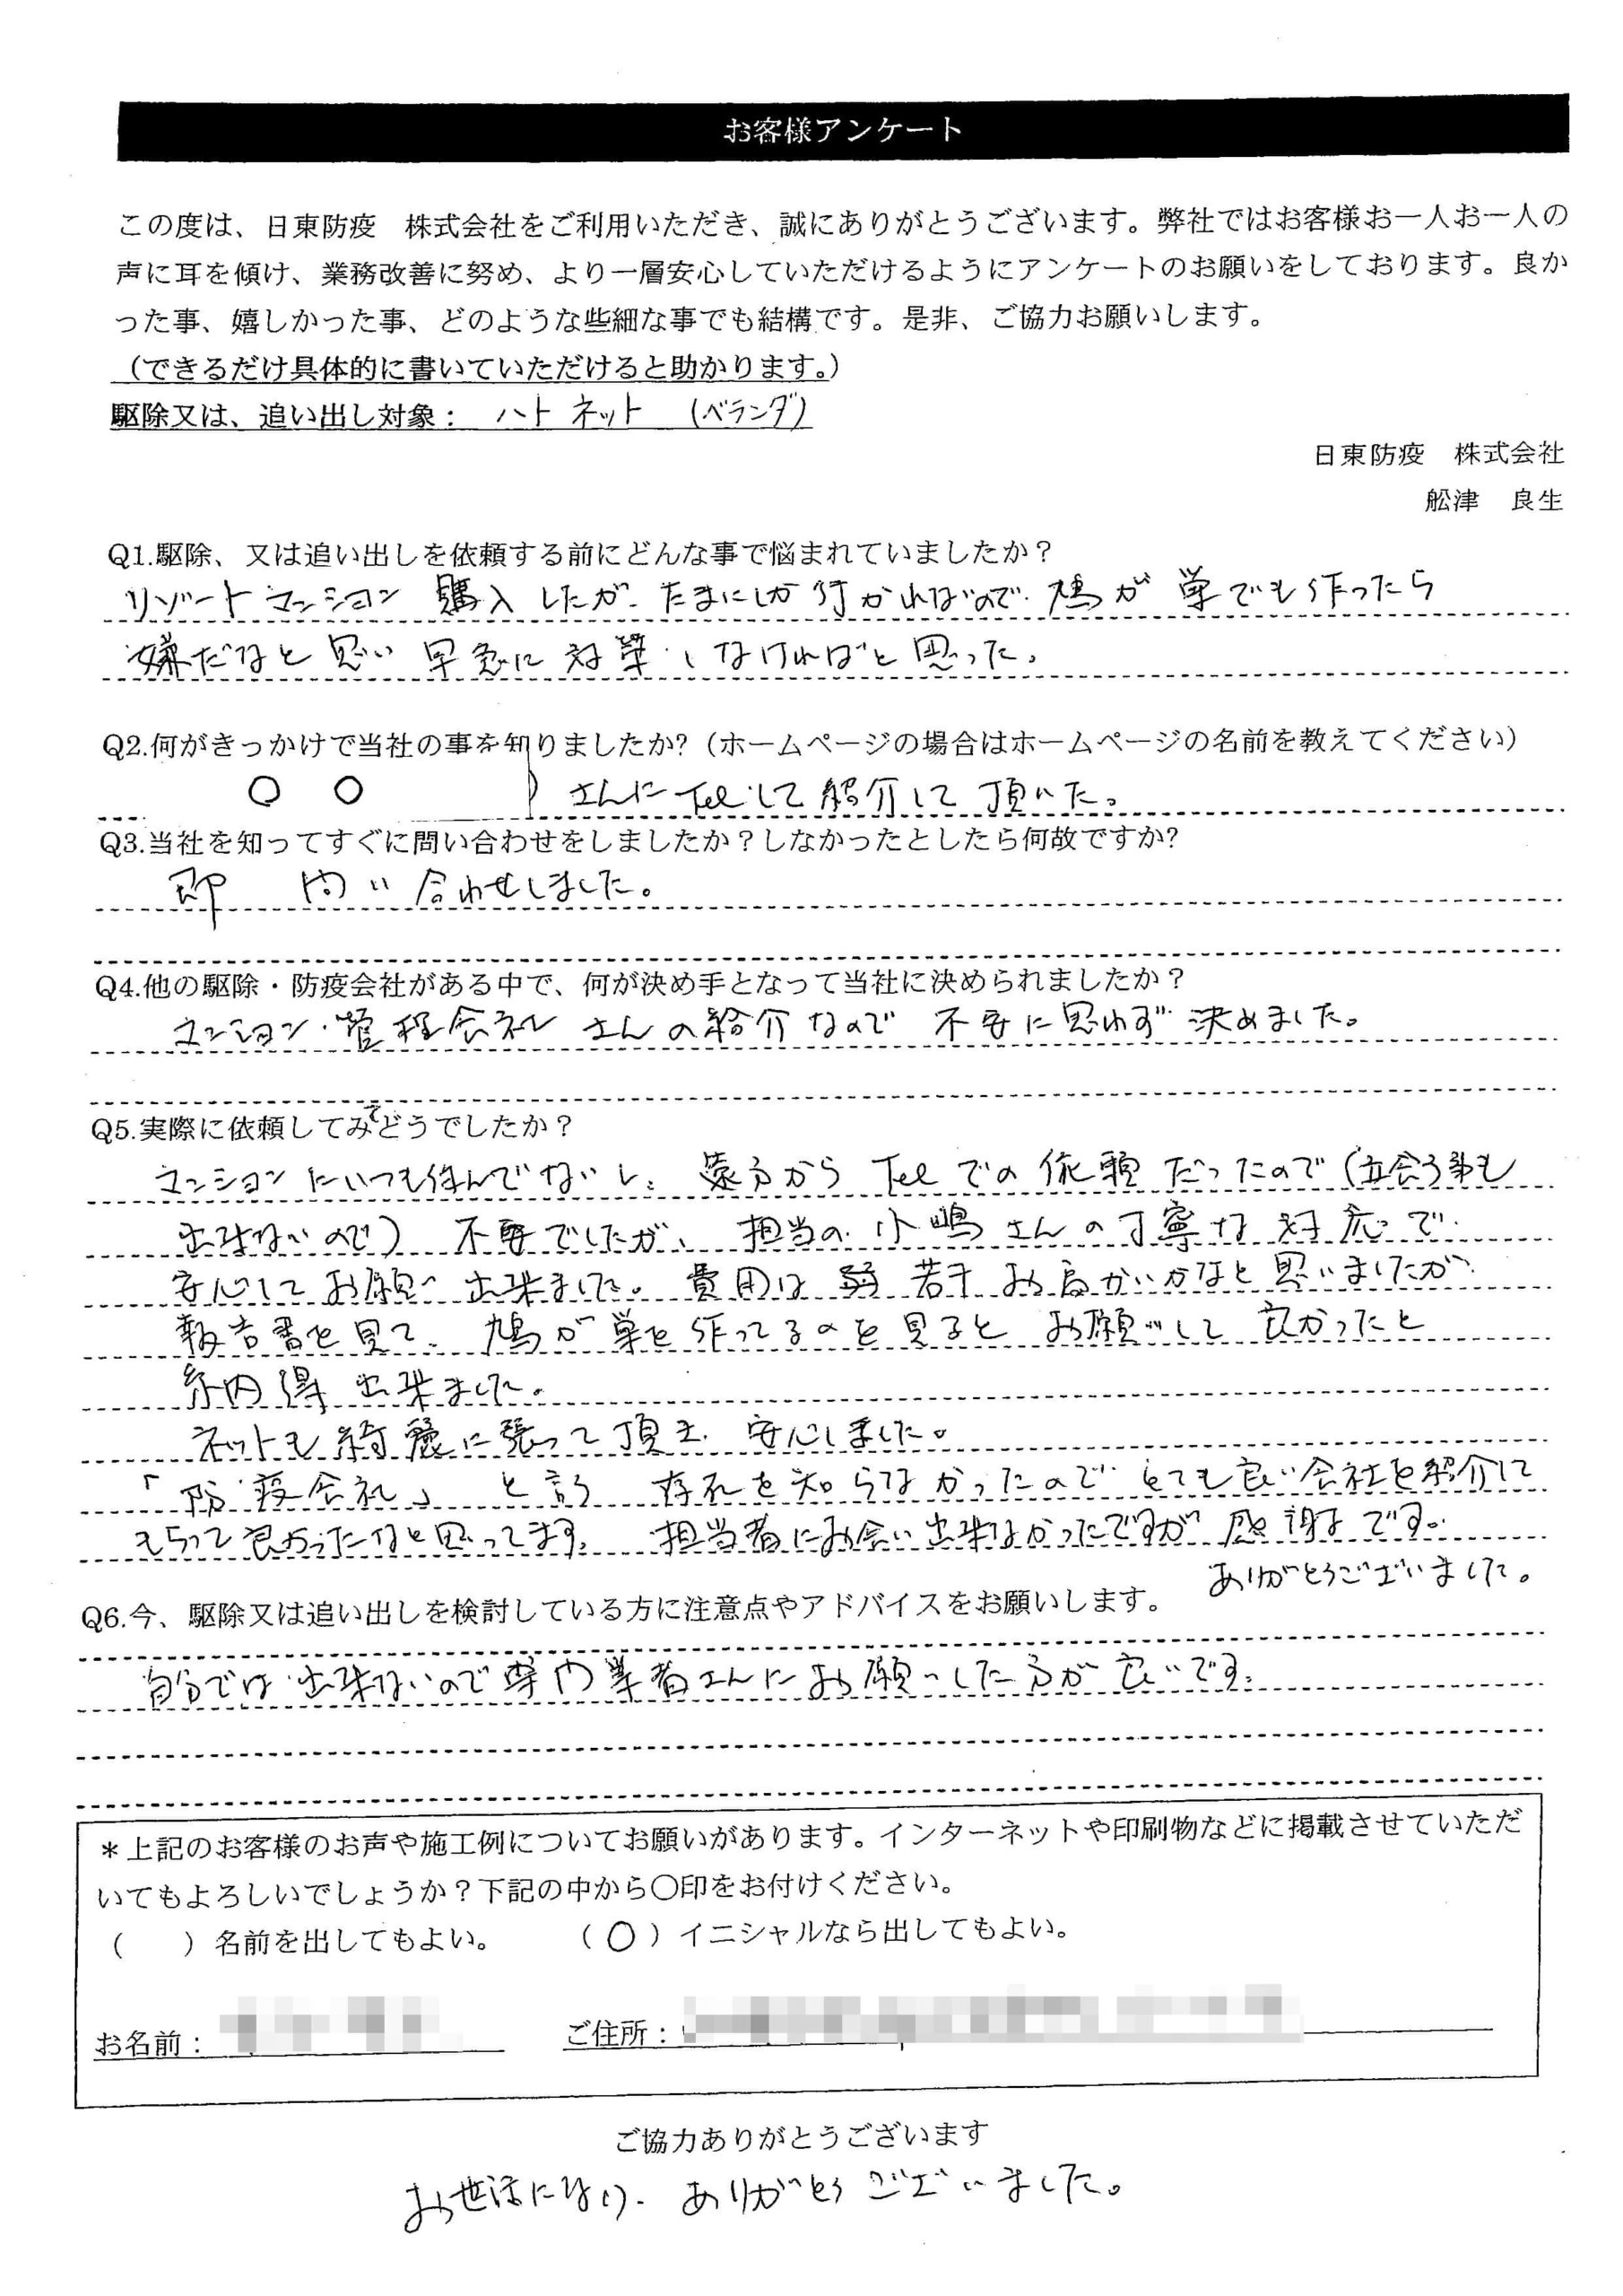 お客様アンケート
この度は、日東防疫　株式会社をご利用いただき、誠にありがとうございます。弊社ではお客様お一人お一人の
声に耳を傾け、業務改善に努め、より一層安心していただけるようにアンケートのお願いをしております。良か
った事、嬉しかった事、どのような些細な事でも結構です。是非、ご協力お願いします。
（できるだけ具体的に書いていただけると助かります。）
駆除又は、追い出し対象： ハトネット （ベランダ）
日東防疫　株式会社
舩津　良生
Q1.駆除、又は追い出しを依頼する前にどんな事で悩まれていましたか？
リゾートマンション 購入したが、たまにしか行かれないので、鳩が巣でも作ったら
嫌だなと思い 早急に対策しなければと思った。
Q2.何がきっかけで当社の事を知りましたか?（ホームページの場合はホームページの名前を教えてください）
○ ○ さんにTelして紹介して頂いた。
Q3.当社を知ってすぐに問い合わせをしましたか？しなかったとしたら何故ですか?
即 問い合わせしました。
Q4.他の駆除・防疫会社がある中で、何が決め手となって当社に決められましたか？
マンション管理会社さんの紹介なので 不安に思わず決めました。
Q5.実際に依頼してみてどうでしたか？
マンションにいつも住んでないし、遠方からTelでの依頼だったので（立会う事も
出来ないので） 不安でしたが、担当の小嶋さんの丁寧な対応で
安心してお願い出来ました。費用は 若干お高かいかなと思いましたが
報告書を見て、鳩が巣を作ってるのを見るとお願いして良かったと
納得出来ました。
ネットも綺麗に張って頂き、安心しました。
「防疫会社」 と言う 存在を知らなかったので とても良い会社を紹介して
もらって良かったなと思ってます。担当者にお会い出来なかったですが 感謝です。
ありがとうございました。
Q6.今、駆除又は追い出しを検討している方に注意点やアドバイスをお願いします。
自分では出来ないので専門業者さんにお願いした方が良いです。
＊上記のお客様のお声や施工例についてお願いがあります。インターネットや印刷物などに掲載させていただ
いてもよろしいでしょうか？下記の中から〇印をお付けください。
（　　）名前を出してもよい。　　（○）イニシャルなら出してもよい。
お名前：　　ご住所：
ご協力ありがとうございます
お世話になり、ありがとうございました。